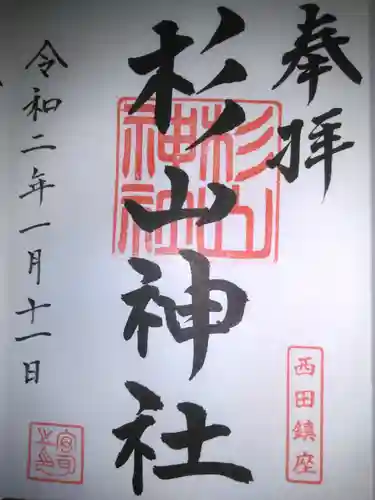 奉拝
西田鎮座
杉山神社
杉山神社
令和二年一月十一日
宮司之印